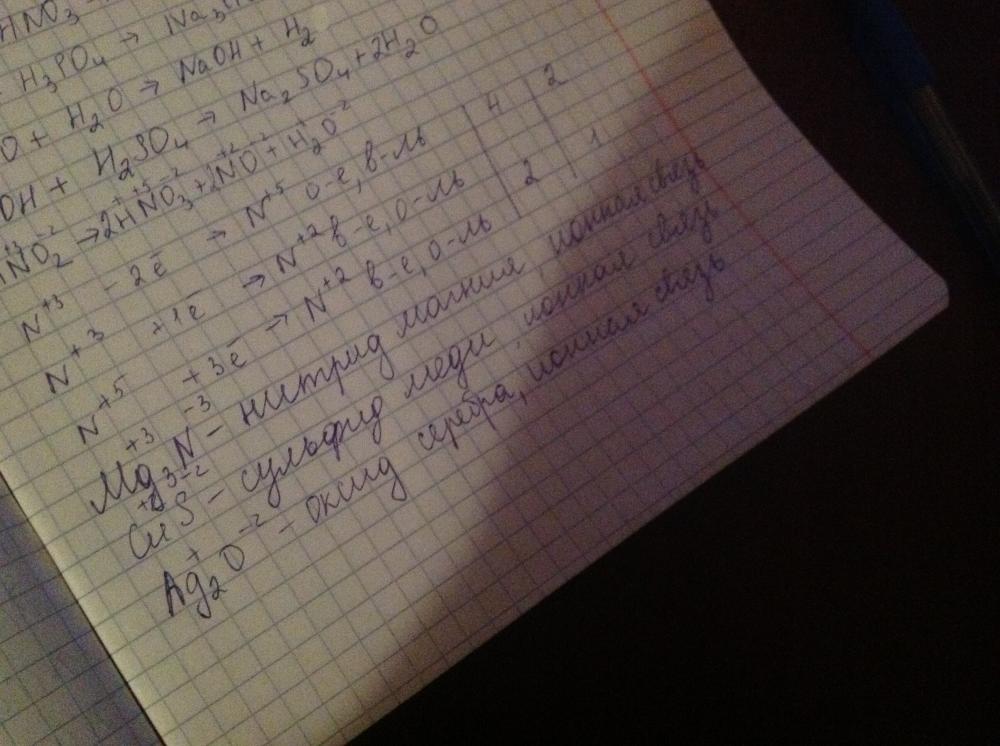 HNO₃
H₃PO₄ → Na₃
O + H₂O → NaOH + H₂
OH + H₂SO₄ → Na₂SO₄ + 2H₂O
HN⁺³O₂⁻² → 2H⁺N⁺⁵O₃⁻² + 2N⁺²O⁻² + H₂⁺O⁻²
N⁺³ - 2ē → N⁺⁵ о-е, в-ль | 4 | 2
N⁺³ + 1ē → N⁺² в-е, о-ль | 2 | 1
N⁺⁵ + 3ē → N⁺² в-е, о-ль
Mg₃⁺³N⁻³ - нитрид магния, ионная связь
CuS⁻² - сульфид меди, ионная связь
Ag₂⁺O⁻² - оксид серебра, ионная связь